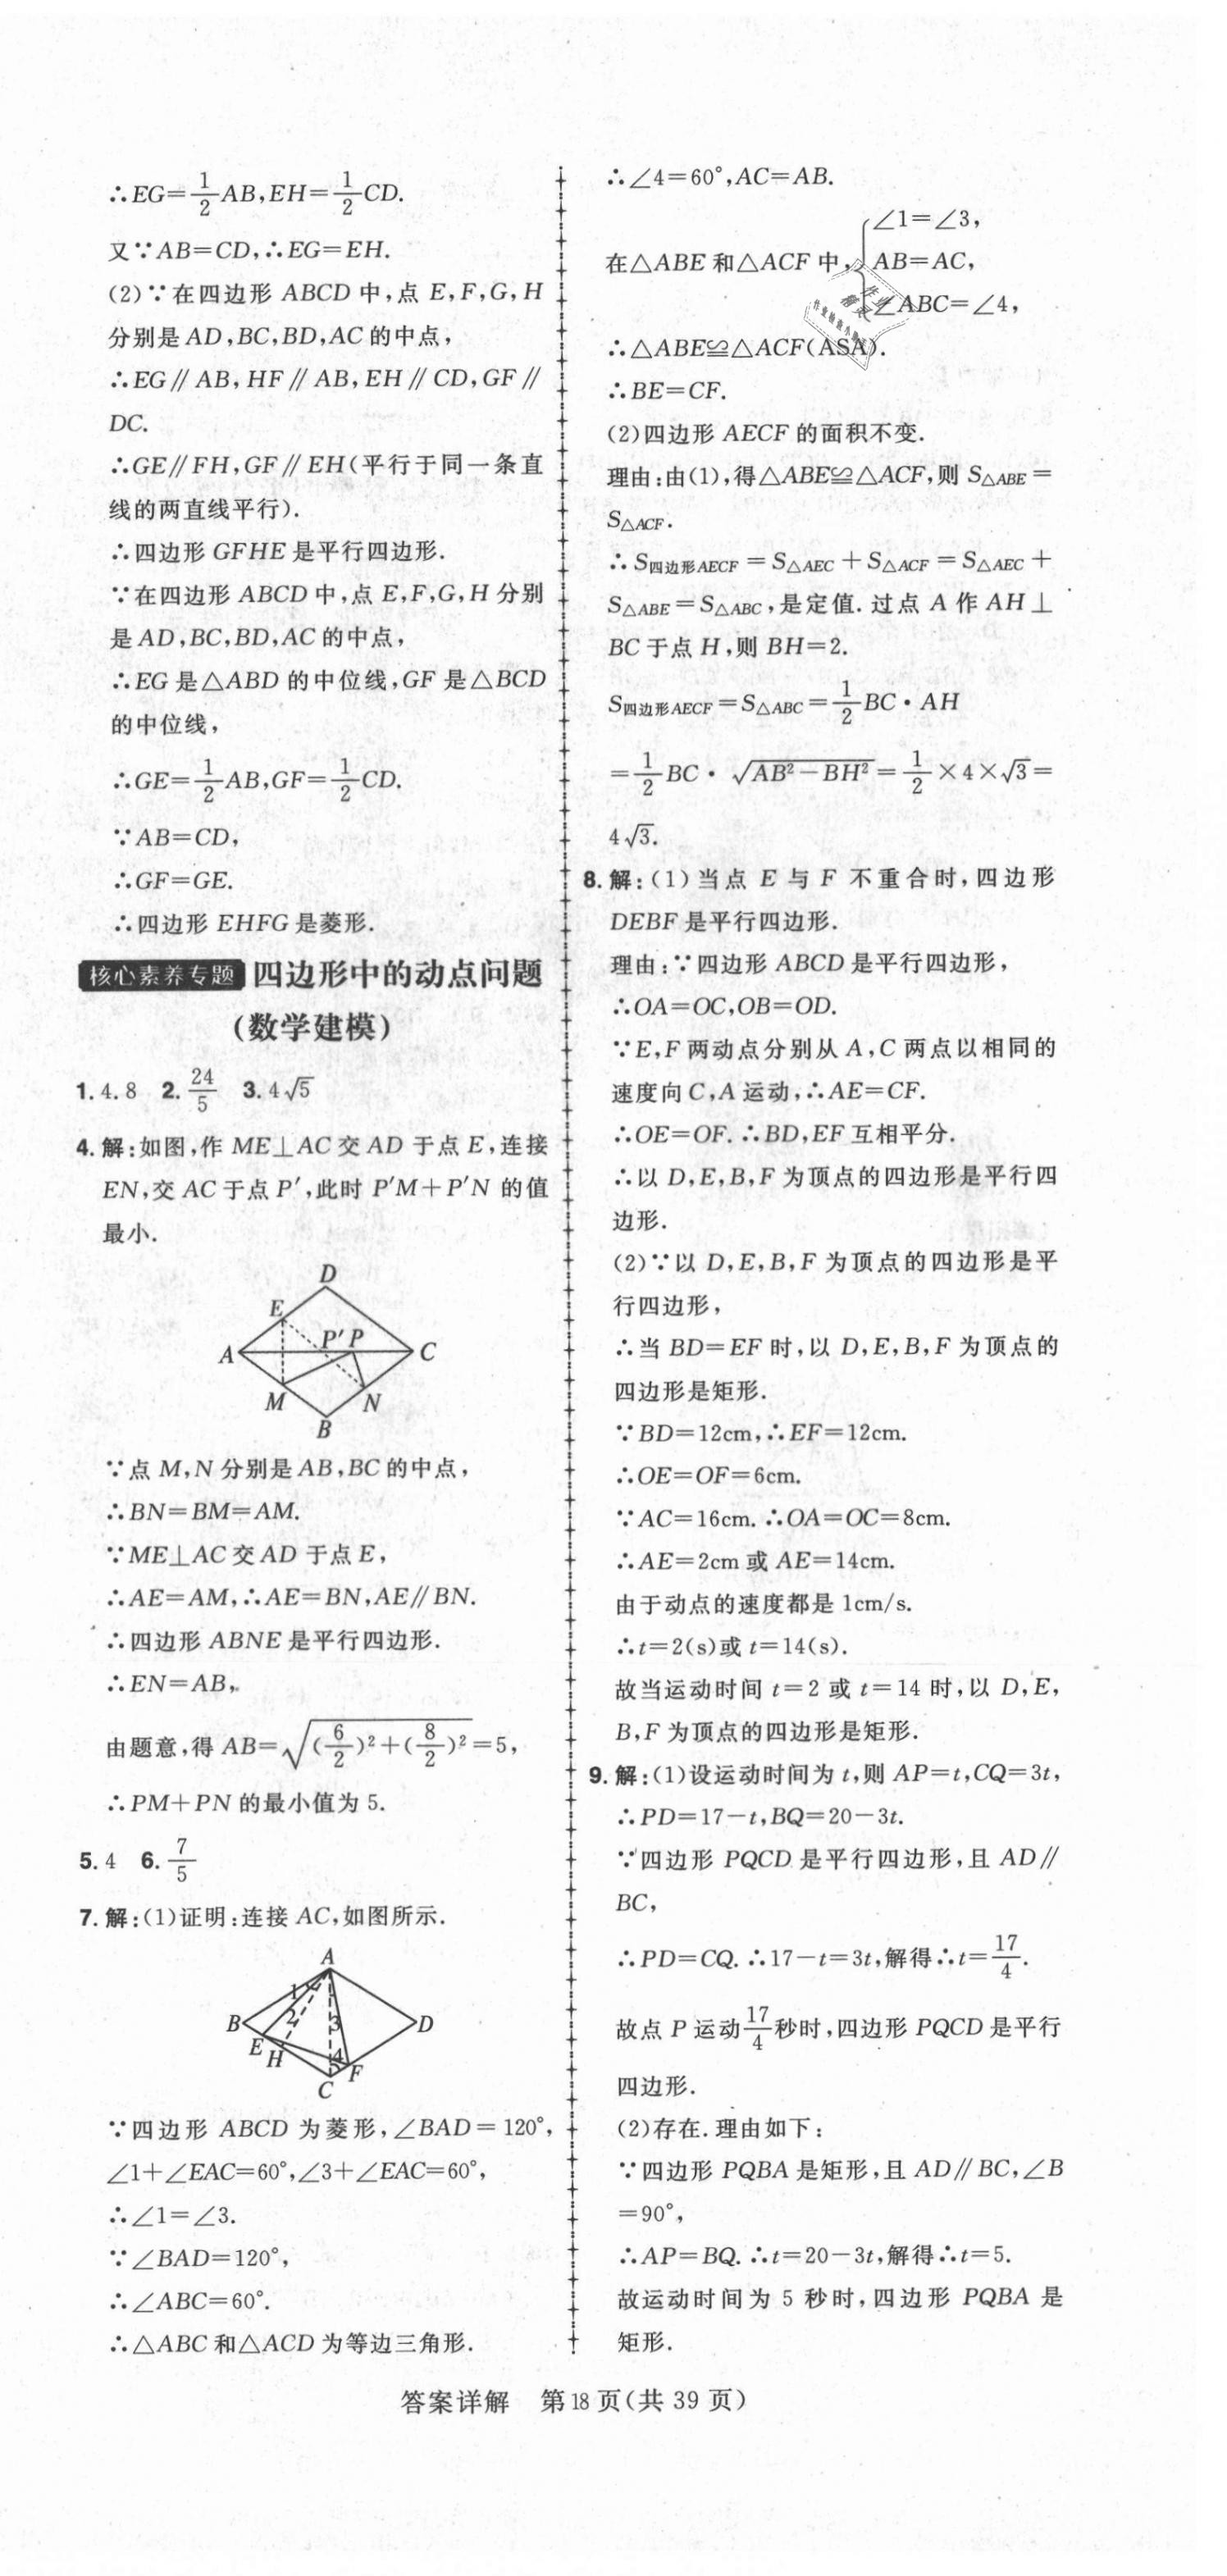 ∴EG=1/2AB,EH=1/2CD.
又∵AB=CD,∴EG=EH.
(2)∵在四边形 ABCD 中,点 E,F,G,H
分别是 AD,BC,BD,AC 的中点,
∴EG∥AB,HF∥AB,EH∥CD,GF∥
DC.
∴GE∥FH,GF∥EH(平行于同一条直
线的两直线平行).
∴四边形 GFHE 是平行四边形.
∵在四边形 ABCD 中,点 E,F,G,H 分别
是 AD,BC,BD,AC 的中点,
∴EG 是△ABD 的中位线,GF 是△BCD
的中位线,
∴GE=1/2AB,GF=1/2CD.
∵AB=CD,
∴GF=GE.
∴四边形 EHFG 是菱形.
核心素养专题 四边形中的动点问题
(数学建模)
1. 4.8 2. 24/5 3. 4√5
4. 解:如图,作 ME⊥AC 交 AD 于点 E,连接
EN,交 AC 于点 P′,此时 P′M+P′N 的值
最小.
D
E
P′ P
A
C
M
N
B
∵点 M,N 分别是 AB,BC 的中点,
∴BN=BM=AM.
∵ME⊥AC 交 AD 于点 E,
∴AE=AM,∴AE=BN,AE∥BN.
∴四边形 ABNE 是平行四边形.
∴EN=AB,
由题意,得 AB=√((6/2)²+(8/2)²)=5,
∴PM+PN 的最小值为 5.
5. 4 6. 7/5
7. 解:(1)证明:连接 AC,如图所示.
A
1
2
3
B
D
E
H
4
F
C
∵四边形 ABCD 为菱形,∠BAD=120°,
∠1+∠EAC=60°,∠3+∠EAC=60°,
∴∠1=∠3.
∵∠BAD=120°,
∴∠ABC=60°.
∴△ABC 和△ACD 为等边三角形.
∴∠4=60°,AC=AB.
∠1=∠3,
在△ABE 和△ACF 中, AB=AC,
∠ABC=∠4,
∴△ABE≌△ACF(ASA).
∴BE=CF.
(2)四边形 AECF 的面积不变.
理由:由(1),得△ABE≌△ACF,则 S△ABE=
S△ACF.
∴S四边形AECF=S△AEC+S△ACF=S△AEC+
S△ABE=S△ABC,是定值.过点 A 作 AH⊥
BC 于点 H,则 BH=2.
S四边形AECF=S△ABC=1/2BC·AH
=1/2BC·√(AB²-BH²)=1/2×4×√3=
4√3.
8. 解:(1)当点 E 与 F 不重合时,四边形
DEBF 是平行四边形.
理由:∵四边形 ABCD 是平行四边形,
∴OA=OC,OB=OD.
∵E,F 两动点分别从 A,C 两点以相同的
速度向 C,A 运动,∴AE=CF.
∴OE=OF.∴BD,EF 互相平分.
∴以 D,E,B,F 为顶点的四边形是平行四
边形.
(2)∵以 D,E,B,F 为顶点的四边形是平
行四边形,
∴当 BD=EF 时,以 D,E,B,F 为顶点的
四边形是矩形.
∵BD=12cm,∴EF=12cm.
∴OE=OF=6cm.
∵AC=16cm.∴OA=OC=8cm.
∴AE=2cm 或 AE=14cm.
由于动点的速度都是 1cm/s.
∴t=2(s)或 t=14(s).
故当运动时间 t=2 或 t=14 时,以 D,E,
B,F 为顶点的四边形是矩形.
9. 解:(1)设运动时间为 t,则 AP=t,CQ=3t,
∴PD=17-t,BQ=20-3t.
∵四边形 PQCD 是平行四边形,且 AD∥
BC,
∴PD=CQ.∴17-t=3t,解得∴t=17/4.
故点 P 运动17/4秒时,四边形 PQCD 是平行
四边形.
(2)存在.理由如下:
∵四边形 PQBA 是矩形,且 AD∥BC,∠B
=90°,
∴AP=BQ.∴t=20-3t,解得∴t=5.
故运动时间为 5 秒时,四边形 PQBA 是
矩形.
答案详解 第18页(共 39 页)